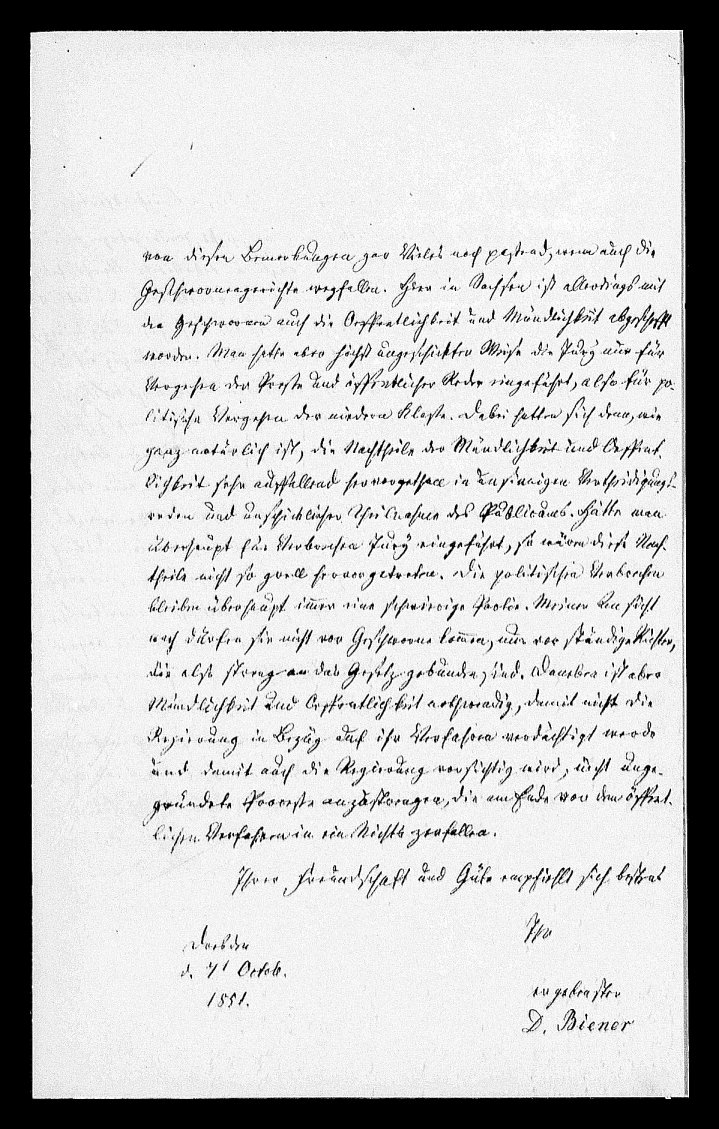 von diesen Bemerkungen gar Vieles noch passend, wenn auch die
Geschwornengerichte wegfallen. Hier in Sachsen ist allerdings mit
den Geschwornen auch die Oeffentlichkeit und Mündlichkeit abgeschafft
worden. Man hatte aber höchst ungeschickter Weise die Jury nur für
Vergehen der Presse und öffentlicher Reden eingeführt, also für po-
litische Vergehen der niedern Klasse. Dabei hatten sich denn, wie
ganz natürlich ist, die Nachtheile der Mündlichkeit und Oeffent-
lichkeit sehr auffallend hervorgethan in unsinnigen Vertheidigungs-
reden und unschicklicher Theilnahme des Publicums. Hätte man
überhaupt für Verbrechen Jury eingeführt, so wären diese Nach-
theile nicht so grell hervorgetreten. Die politischen Verbrechen
bleiben überhaupt immer eine schwierige Partie. Meiner Ansicht
nach dürfen sie nicht vor Geschworne kommen, nur vor ständige Richter,
die also streng an das Gesetz gebunden sind. Daneben ist aber
Mündlichkeit und Oeffentlichkeit nothwendig, damit nicht die
Regierung in Bezug auf ihr Verfahren verdächtigt werde
und damit auch die Regierung vorsichtig wird, nicht unge-
gründete Processe anzustrengen, die am Ende vor dem öffent-
lichen Verfahren in ein Nichts zerfallen.
Ihrer Freundschaft und Güte empfiehlt sich bestens
Ihr
Dresden
d. 7t Octob.
1851.
ergebenster
D. Biener